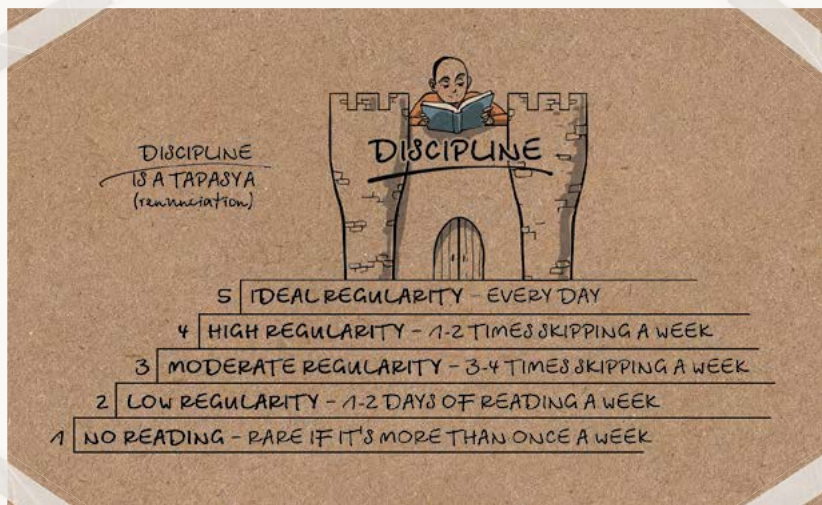 DISCIPLINE
IS A TAPASYA
(renunciation)
DISCIPLINE
5 IDEAL REGULARITY – EVERY DAY
4 HIGH REGULARITY – 1-2 TIMES SKIPPING A WEEK
3 MODERATE REGULARITY – 3-4 TIMES SKIPPING A WEEK
2 LOW REGULARITY – 1-2 DAYS OF READING A WEEK
1 NO READING – RARE IF IT'S MORE THAN ONCE A WEEK